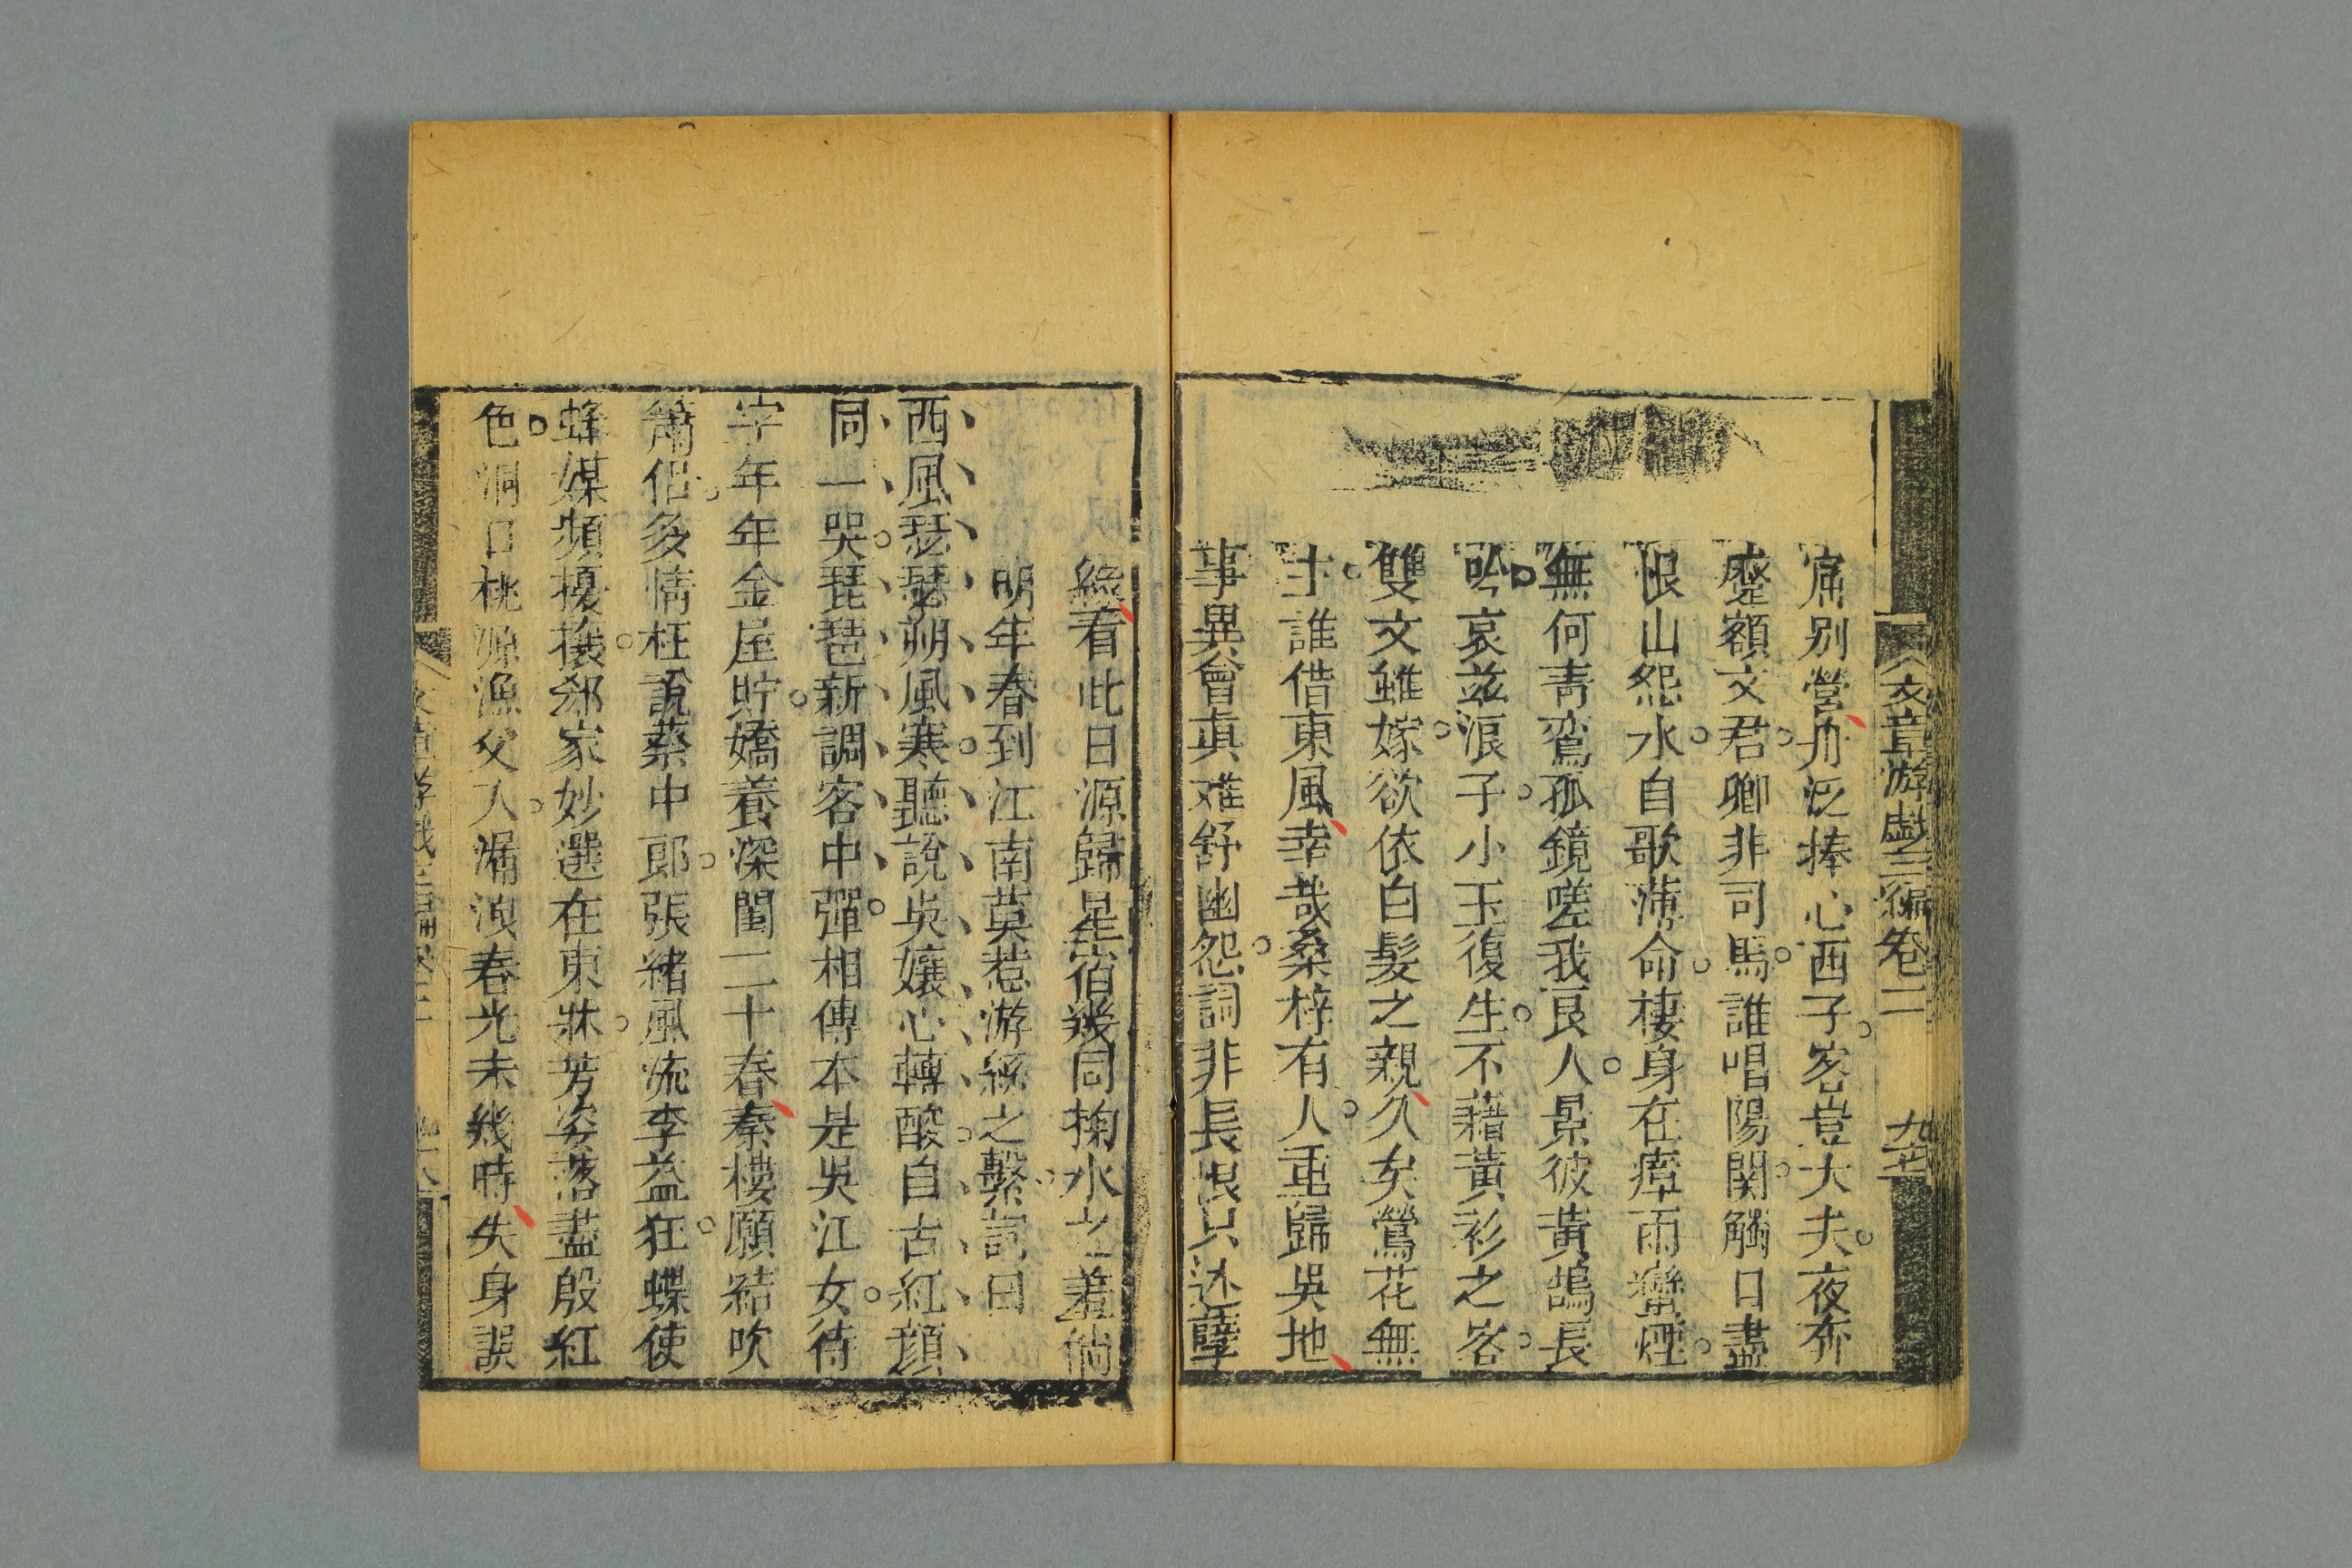 文章游戲三編卷二
甯別營舟泛捧心西子客豈大夫夜奔
蹙額文君卿非司馬誰唱陽関觸口盡
恨山怨水自歌薄命棲身在瘴雨蠻煙
無何靑鸞孤鏡嗟我良人景彼黃鵠長
吟哀茲浪子小玉復生不藉黃衫之客
雙文雖嫁欲依白髮之親久矣鶯花無
主誰借東風幸哉桑梓有人重歸吳地
事異會眞难舒幽怨詞非長恨只述孽
綠看此日源歸星宿幾同掬水之羞倘
明年春到江南莫惹游絲之繫詞曰
西風瑟瑟朔風寒聽說吳孃心轉酸自古紅顏
同一哭琵琶新調客中彈相傳本是吳江女待
字年年金屋貯嬌養深閨二十春秦樓願結吹
簫侶多情枉說蔡中郎張緒風流李益狂蝶使
蜂媒頻擾攘郄家妙選在東牀芳姿落盡殷紅
色洞口桃源漁父入漏洩春光未幾時失身誤
文章游戲三編卷二